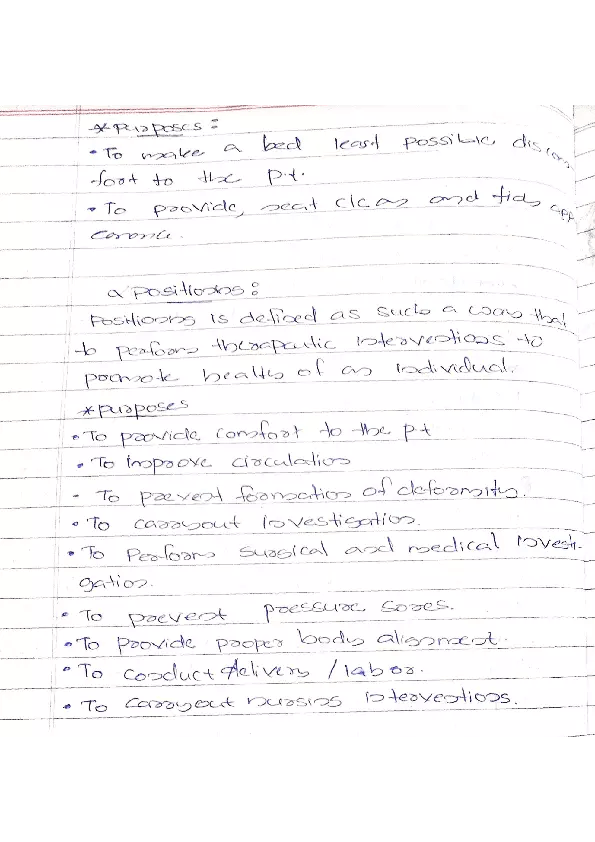 * purposes :
• To make a bed least possible discom
-fort to the p.t.
• To provide, neat clean and tidy app
earance.
a positions :
Positioning is defined as such a way that
to perform therapeutic interventions to
promote health of an individual.
* purposes
• To provide comfort to the p.t
• To improve circulation
- To prevent formation of deformity.
• To carryout investigation.
• To Perform surgical and medical investi-
gation.
• To prevent pressure sores.
• To provide proper body alignment.
• To conduct delivery / labor.
• To carryout nursing interventions.